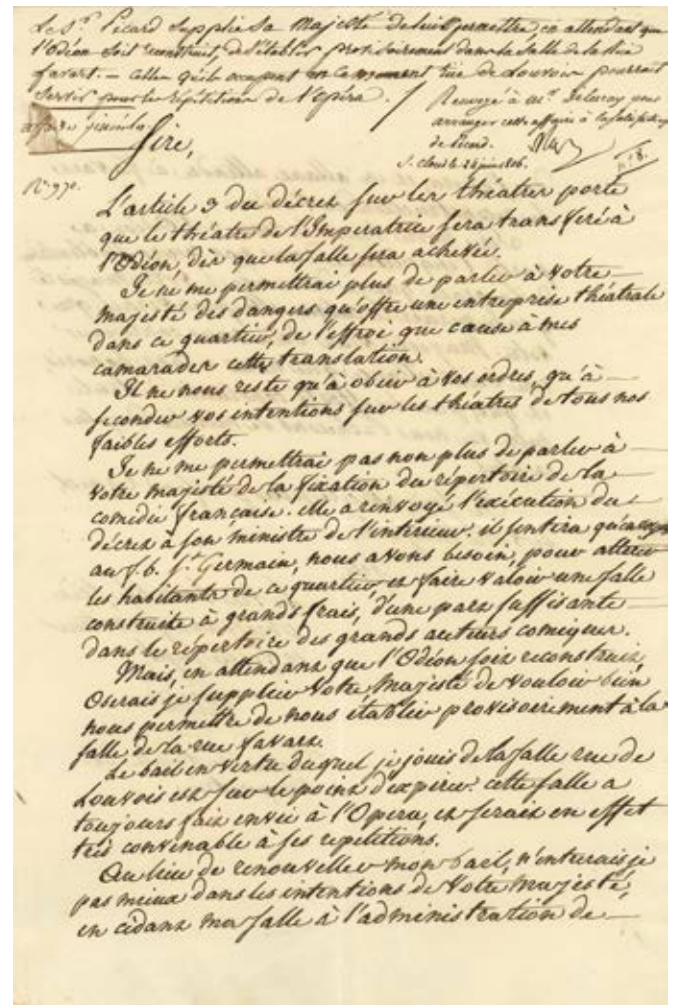 Le Sr. Picard supplie Sa Majesté de lui permettre, en attendant que
l'Odéon soit reconstruit, de s'établir provisoirement dans la Salle de la Rue
favart. — Celle qu'ils occupent en ce moment rue de Louvois pourrait
servir pour les répétitions de l'opéra.
Renvoyé à Mr. pour
arranger cette affaire à la satisfaction
de Picard.
S. Cloud le 24 juin 1806.
Sire,
No. 970.
L'article 3 du décret sur les théatres porte
que le théatre de l'Imperatrice sera transféré à
l'Odéon, dès que la salle sera achevée.
Je ne me permettrai plus de parler à Votre
majesté des dangers qu'offre une entreprise théatrale
dans ce quartier, de l'effroi que cause à mes
camarades cette translation.
Il ne nous reste qu'à obéir à vos ordres, qu'à
seconder vos intentions sur les théatres de tous nos
faibles efforts.
Je ne me permettrai pas non plus de parler à
Votre majesté de la fixation du répertoire de la
comédie française. elle a renvoyé l'exécution du
décret à son ministre de l'intérieur. il sentira
au f.b. St. Germain, nous avons besoin, pour attirer
les habitants de ce quartier, et faire valoir une salle
construite à grands frais, d'une part suffisante
dans le répertoire des grands auteurs comiques.
Mais, en attendant que l'Odéon soit reconstruit,
Oserais je supplier Votre Majesté de vouloir bien
nous permettre de nous établir provisoirement à la
salle de la rue favart.
Le bail en vertu duquel je jouis de la salle rue de
Louvois est sur le point d'expirer. cette salle a
toujours fait envie à l'Opera, et serait en effet
très convenable à ses repetitions.
Au lieu de renouveller mon bail, n'entrerais je
pas mieux dans les intentions de Votre Majesté,
en cédant ma salle à l'administration de